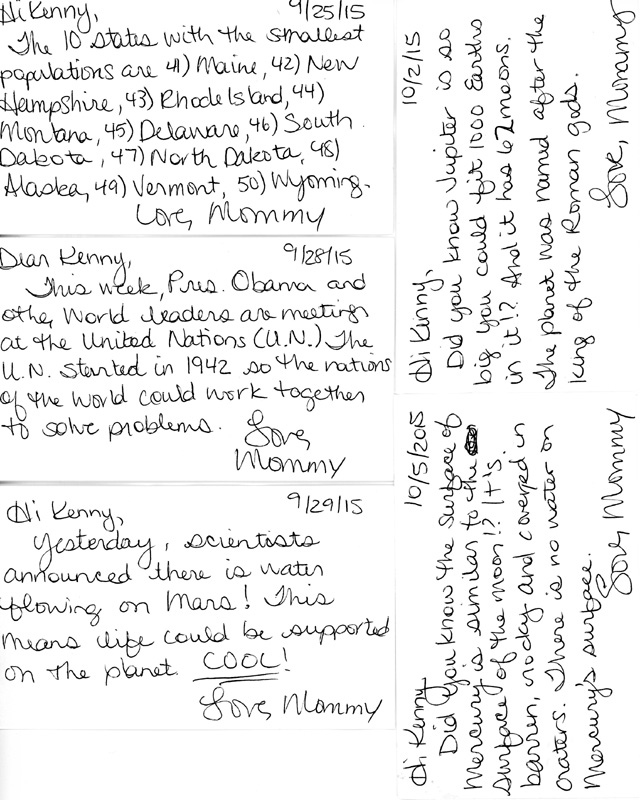 Hi Kenny, 9/25/15
The 10 states with the smallest
populations are 41) Maine, 42) New
Hampshire, 43) Rhode Island, 44)
Montana, 45) Delaware, 46) South
Dakota, 47) North Dakota, 48)
Alaska, 49) Vermont, 50) Wyoming.
Love, Mommy
Dear Kenny, 9/28/15
This week, Pres. Obama and
other world leaders are meeting
at the United Nations (U.N.) The
U.N. started in 1942 so the nations
of the world could work together
to solve problems. Love,
Mommy
Hi Kenny, 9/29/15
Yesterday, scientists
announced there is water
flowing on Mars! This
means life could be supported
on the planet. COOL!
Love, Mommy
Hi Kenny, 10/2/15
Did you know Jupiter is so
big you could fit 1000 Earths
in it!? And it has 62 moons.
The planet was named after the
king of the Roman gods.
Love, Mommy
Hi Kenny, 10/5/2015
Did you know the surface of
Mercury is similar to the
surface of the moon!? It's
barren, rocky and covered in
craters. There is no water on
Mercury's surface.
Love, Mommy